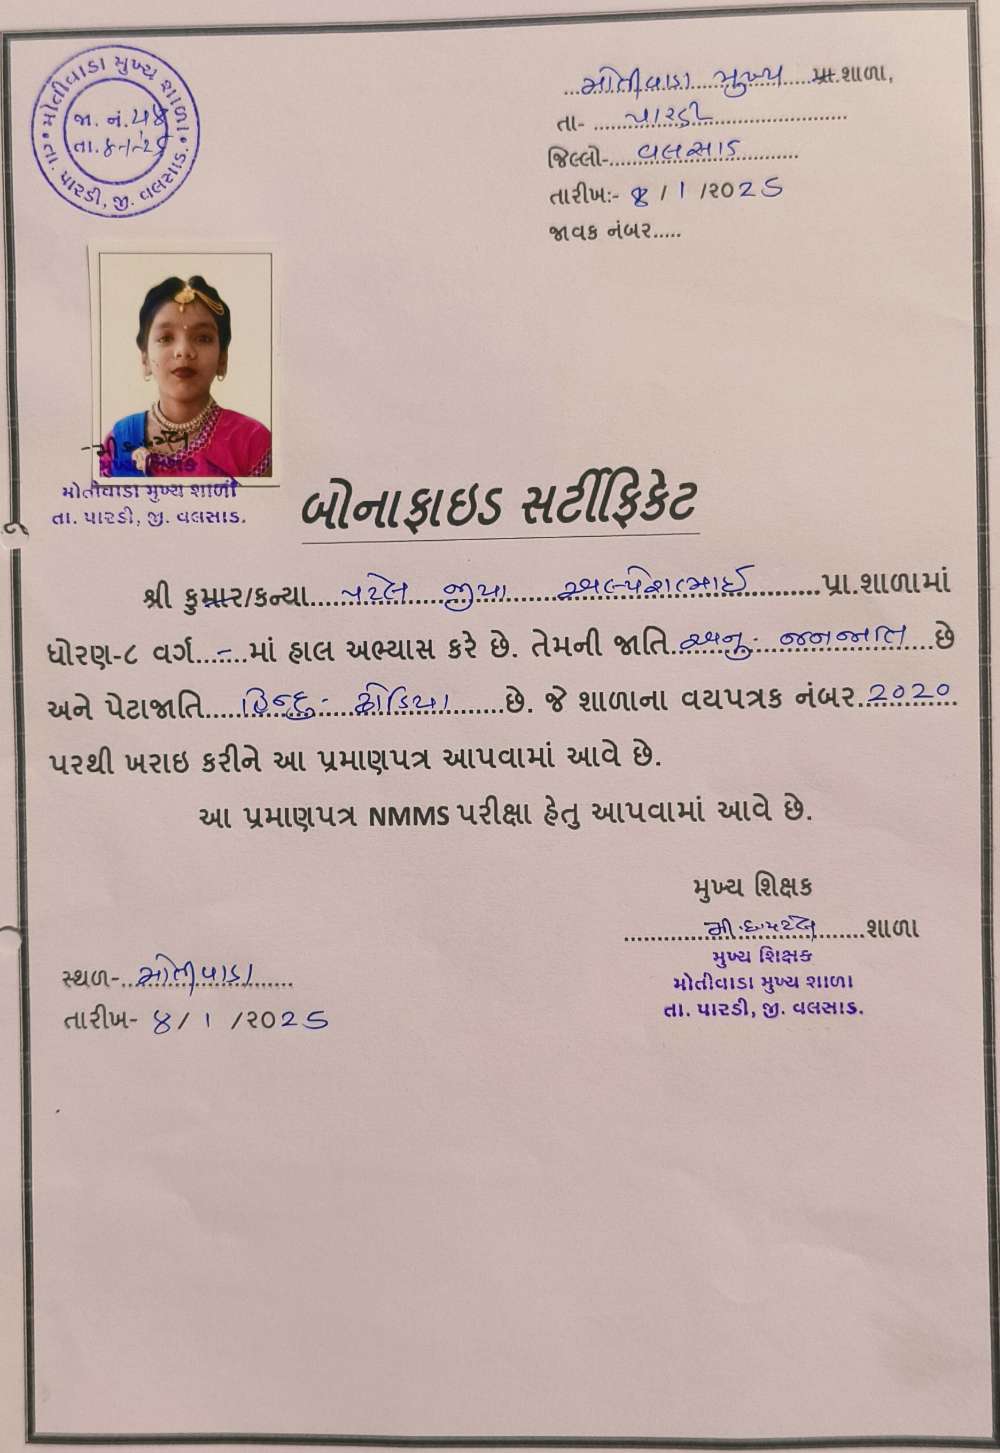 મોતીવાડા મુખ્ય શાળા
જા. નં. ૫૪
તા. ૪-૧-૨૬
તા. પારડી, જી. વલસાડ.
મોતીવાડા મુખ્ય પ્રા.શાળા,
તા- પારડી
જિલ્લો- વલસાડ
તારીખ:- ૪ / ૧ /૨૦૨૬
જાવક નંબર.....
મુખ્ય શિક્ષક
મોતીવાડા મુખ્ય શાળા
તા. પારડી, જી. વલસાડ.
બોનાફાઇડ સર્ટીફિકેટ
શ્રી કુમાર/કન્યા પટેલ જીયા અલ્પેશભાઈ પ્રા.શાળામાં
ધોરણ-૮ વર્ગ...-...માં હાલ અભ્યાસ કરે છે. તેમની જાતિ અનુ. જનજાતિ છે
અને પેટાજાતિ હિન્દુ- ધોડિયા છે. જે શાળાના વયપત્રક નંબર 2020
પરથી ખરાઇ કરીને આ પ્રમાણપત્ર આપવામાં આવે છે.
આ પ્રમાણપત્ર NMMS પરીક્ષા હેતુ આપવામાં આવે છે.
મુખ્ય શિક્ષક
શાળા
મુખ્ય શિક્ષક
મોતીવાડા મુખ્ય શાળા
તા. પારડી, જી. વલસાડ.
સ્થળ- મોતીવાડા
તારીખ- ૪/ ૧ /૨૦૨૬